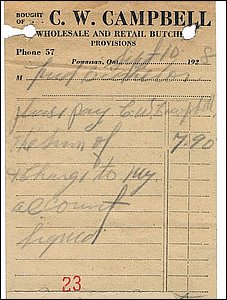 BOUGHT OF
C. W. CAMPBELL
WHOLESALE AND RETAIL BUTCHER
PROVISIONS
Phone 57
Powassan, Ont., 10 192
M
please pay C.W. Campbell
the sum of 7.90
& charge to my
account
Signed
23